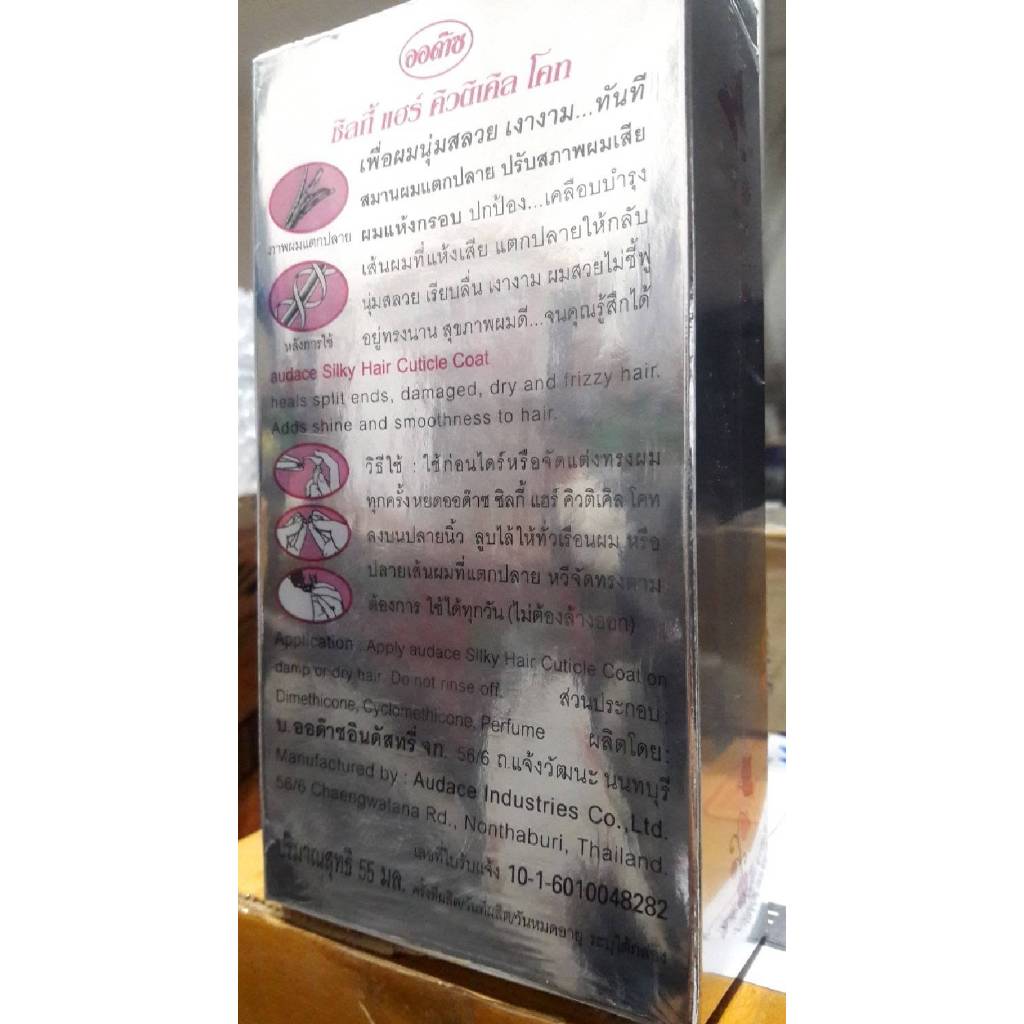 ออด๊าซ
ซิลกี้ แฮร์ คิวติเคิล โคท
เพื่อผมนุ่มสลวย เงางาม...ทันที
สมานผมแตกปลาย ปรับสภาพผมเสีย
ผมแห้งกรอบ ปกป้อง...เคลือบบำรุง
ภาพผมแตกปลาย
เส้นผมที่แห้งเสีย แตกปลายให้กลับ
นุ่มสลวย เรียบลื่น เงางาม ผมสวยไม่ชี้ฟู
อยู่ทรงนาน สุขภาพผมดี...จนคุณรู้สึกได้
หลังการใช้
audace Silky Hair Cuticle Coat
heals split ends, damaged, dry and frizzy hair.
Adds shine and smoothness to hair.
วิธีใช้ : ใช้ก่อนไดร์หรือจัดแต่งทรงผม
ทุกครั้ง หยดออด๊าซ ซิลกี้ แฮร์ คิวติเคิล โคท
ลงบนปลายนิ้ว ลูบไล้ให้ทั่วเรือนผม หรือ
ปลายเส้นผมที่แตกปลาย หวีจัดทรงตาม
ต้องการ ใช้ได้ทุกวัน (ไม่ต้องล้างออก)
Application : Apply audace Silky Hair Cuticle Coat on
damp or dry hair. Do not rinse off. ส่วนประกอบ :
Dimethicone, Cyclomethicone, Perfume ผลิตโดย :
บ.ออด๊าซอินดัสทรี่ จก. 56/6 ถ.แจ้งวัฒนะ นนทบุรี
Manufactured by : Audace Industries Co.,Ltd.
56/6 Chaengwatana Rd., Nonthaburi, Thailand.
เลขที่ใบรับแจ้ง 10-1-6010048282
ปริมาณสุทธิ 55 มล. ครั้งที่ผลิต/วันที่ผลิต/วันหมดอายุ ระบุใต้กล่อง